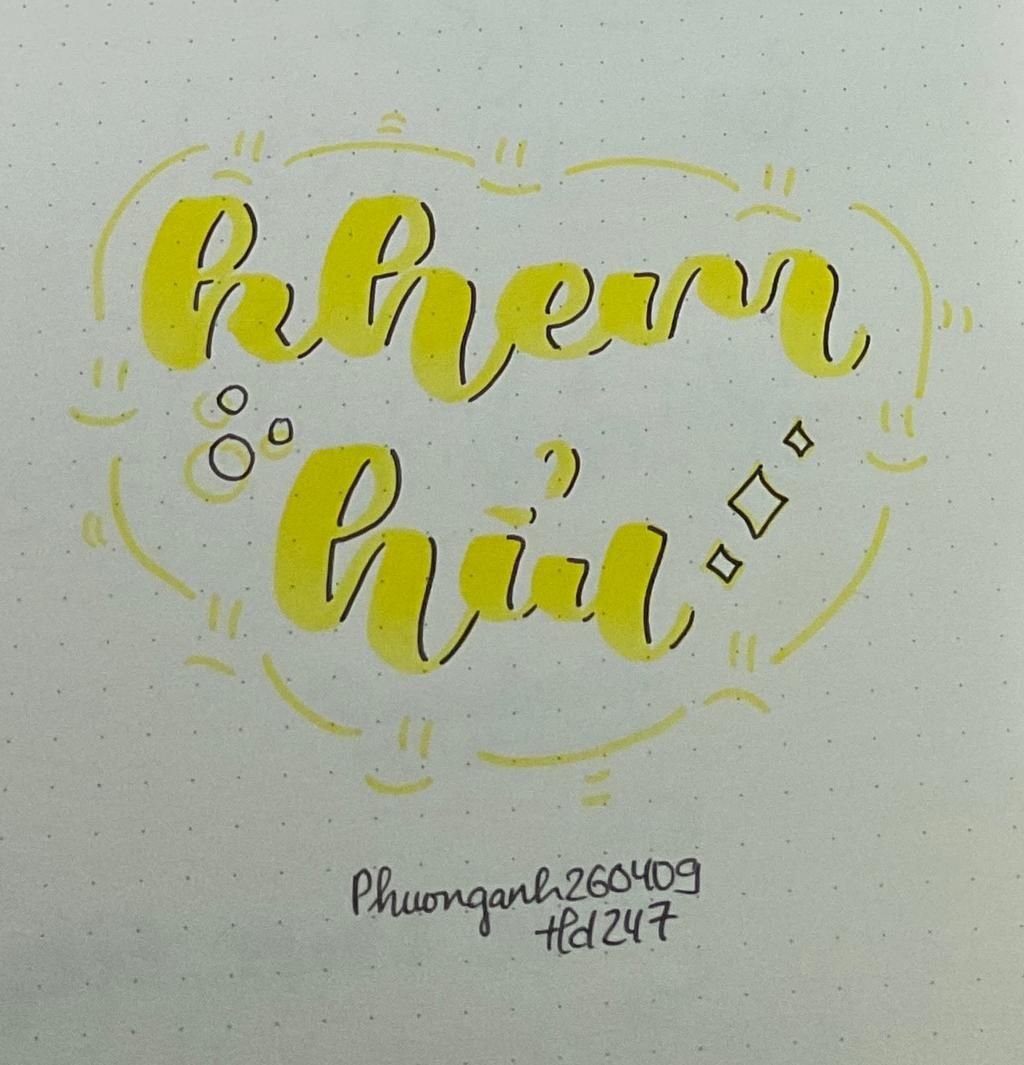 khem
hỉu
Phuonganh260409
tld247